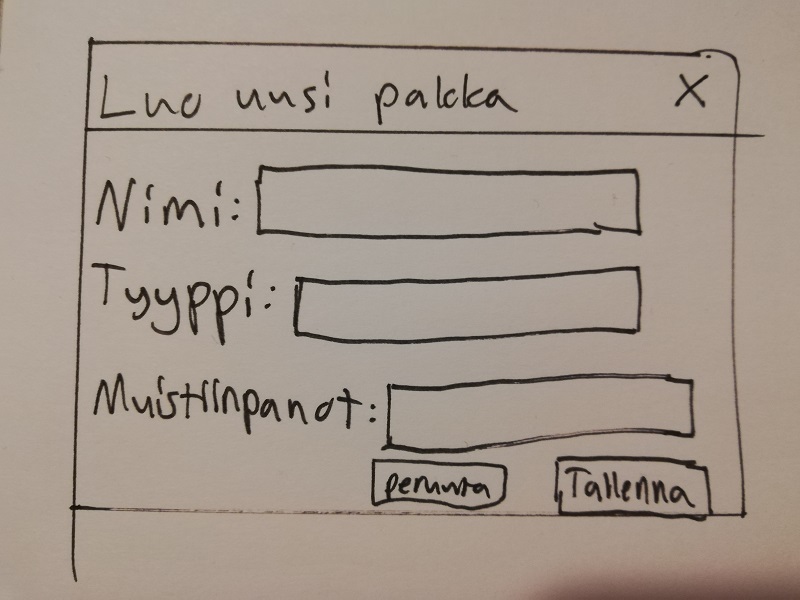 Luo uusi pakka X
Nimi:
Tyyppi:
Muistiinpanot:
peruuta Tallenna